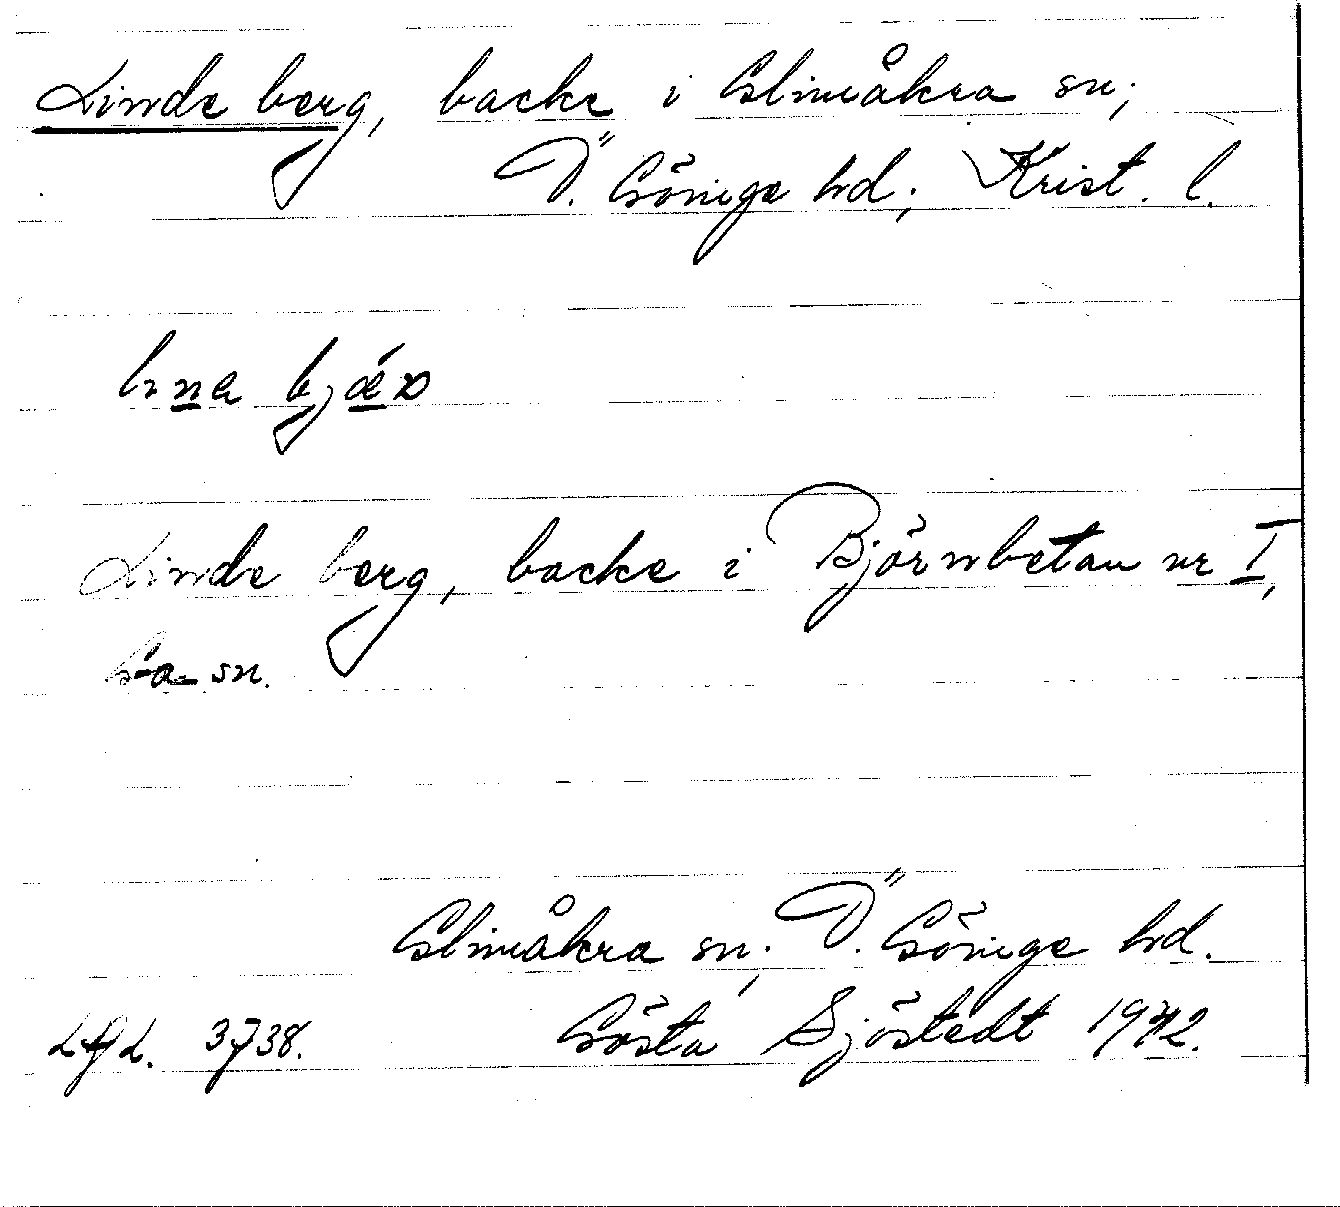 Linde berg, backe i Glimåkra sn;
Ö. Göinge hd; Krist. l.
Linde berg, backe i Björnbetan nr I,
Ga sn.
Glimåkra sn; Ö. Göinge hd.
LfL. 3738. Gösta Sjöstedt 1942.